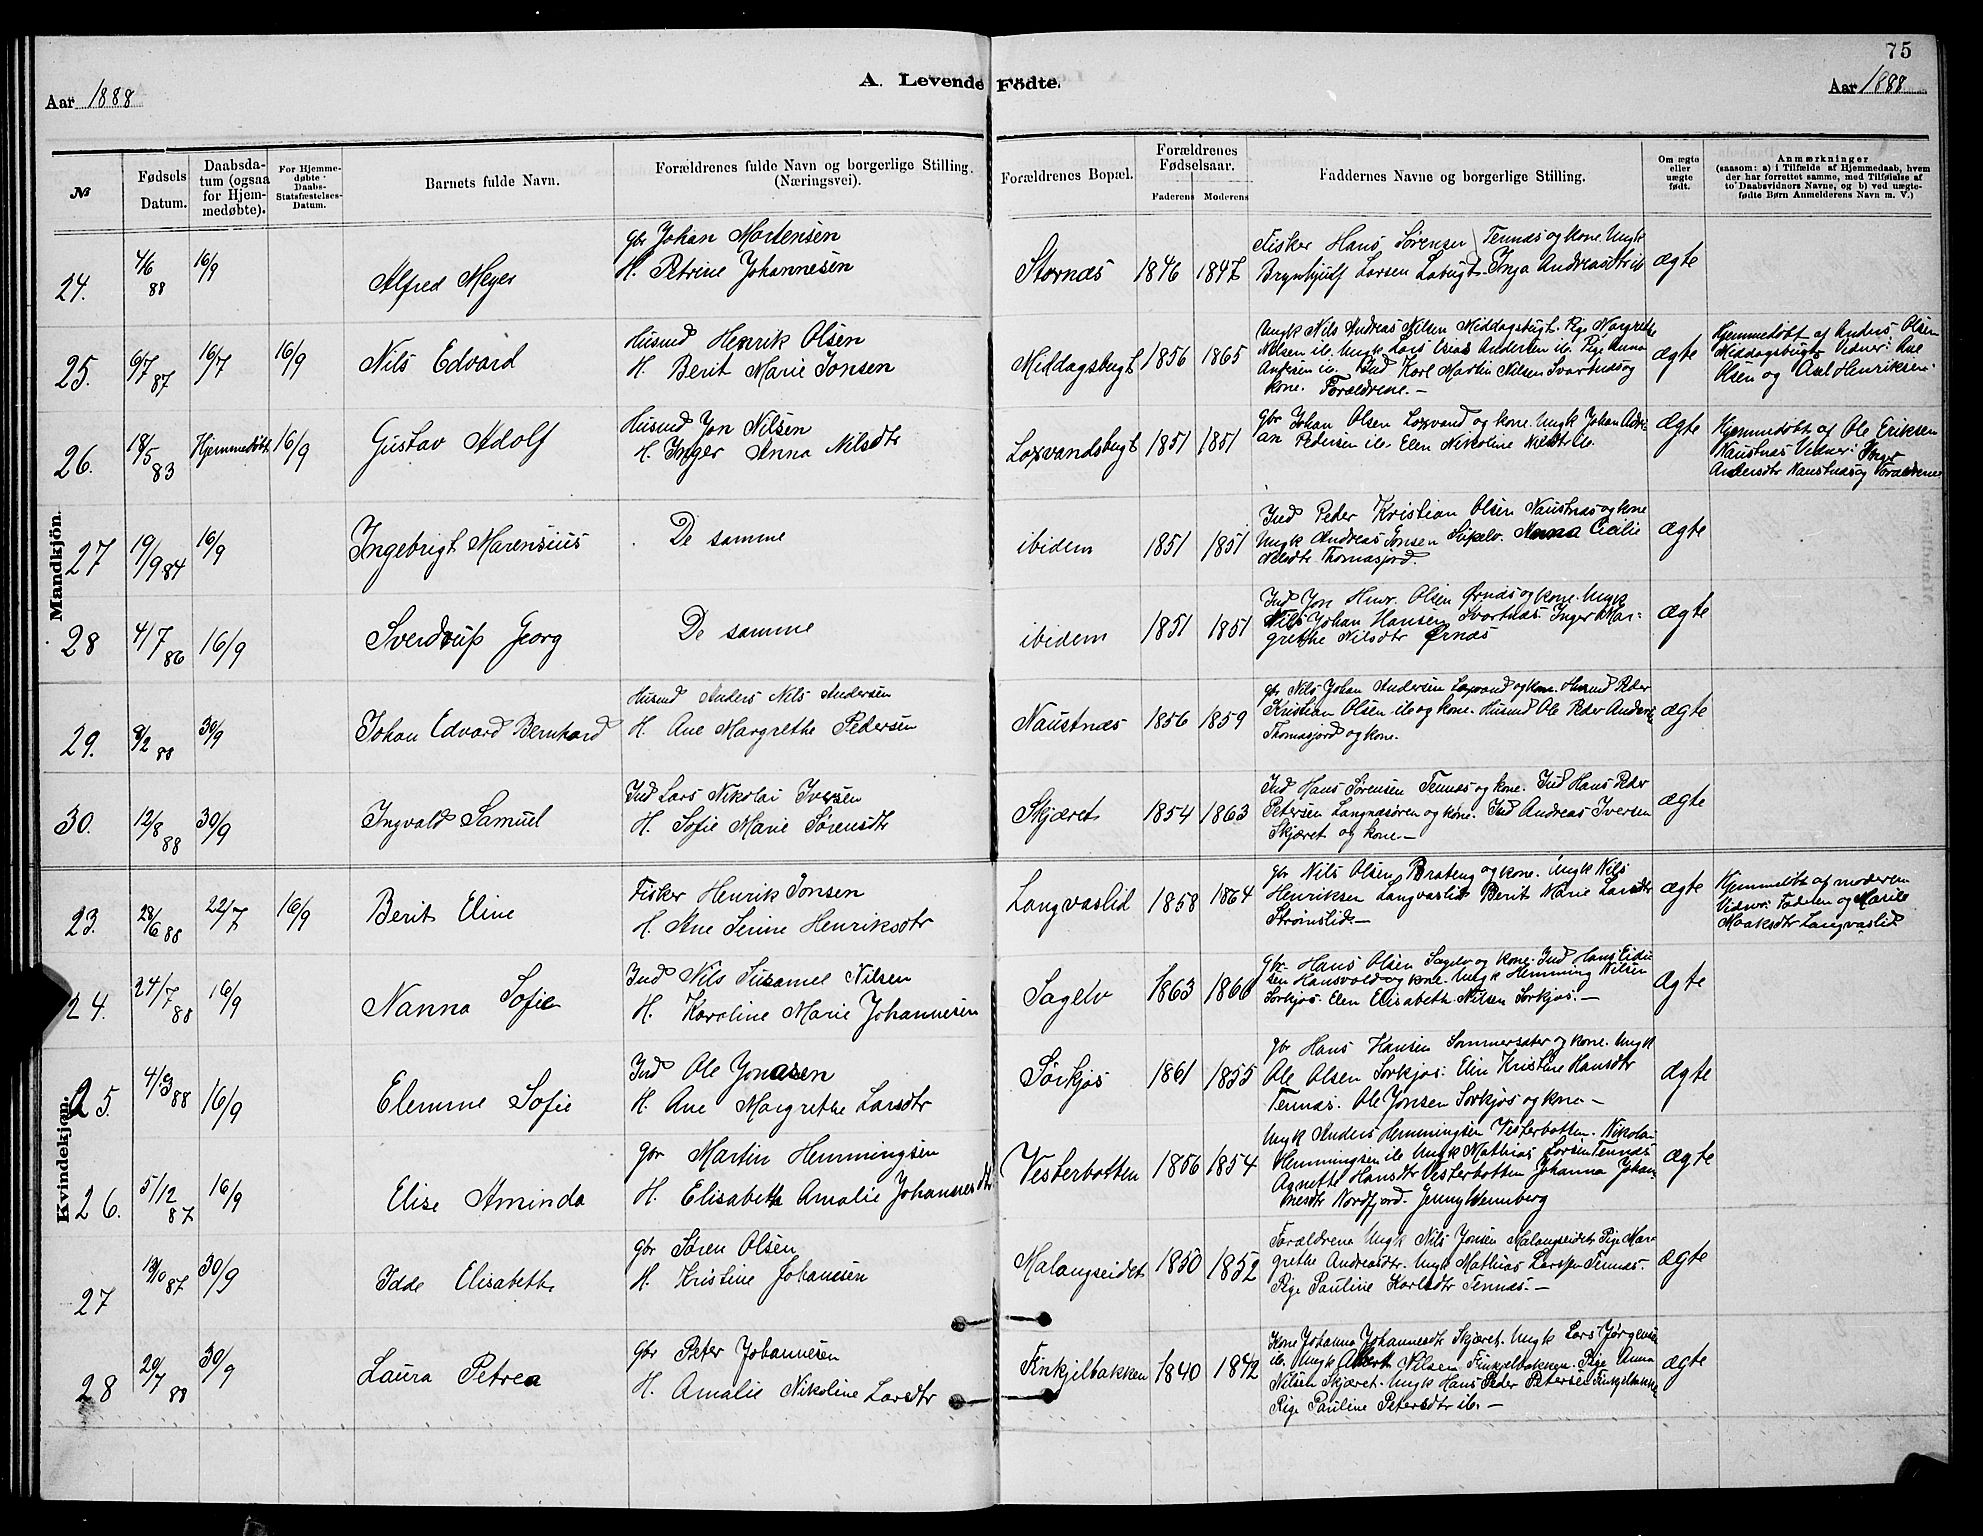 75
Aar 1888
A. Levende Fødte.
Aar 1888
№
Fødsels Datum.
Daabsdatum (ogsaa for Hjemmedøbte).
For Hjemmedøbte Daabs-Statsfæstelses-Datum.
Barnets fulde Navn.
Forældrenes fulde Navn og borgerlige Stilling. (Næringsvei).
Forældrenes Bopæl.
Forældrenes Fødselsaar.
Faderens
Moderens
Faddernes Navne og borgerlige Stilling.
Om ægte eller uægte født.
Anmærkninger
(saasom: a) i Tilfælde af Hjemmedaab, hvem
der har forrettet samme, med Tilføielse af
to Daabsvidners Navne, og b) ved uægte-
fødte Børn Anmelderens Navn m. V.)
Mandkjön.
24.
4/6 88
16/9
Alfred Meyer
Gbr Johan Mortensen
H. Petrine Johannesen
Stornæs
1846
1847
Fisker Hans Sørensen Tennæs og kone. Ungk
Brynhjulf Larsen Løbugt. Inga Andreasdtr ib
ægte
25.
6/7 87
16/7
16/9
Nils Edvard
Husmd Henrik Olsen
H. Berit Marie Jonsen
Middagsbugt
1856
1865
Ungk Nils Andreas Nilsen Middagsbugt. Pige Margrethe
Nilsen ib. Ungk Lars Andersen ib. Pige Anna
Andersen ib. Ind Karl Martin Nilsen Svartnæs og
kone. Forældrene.-
ægte
Hjemmedøbt af Anders Olsen
Middagsbugt Vidner: Ane
Olsen og Axel Henriksen.
26.
18/5 83
Hjemmedøbt
16/9
Gustav Adolf
Husmd Jon Nilsen
H. Inger Anna Nilsdtr
Laxvandsbugt
1851
1851
Gbr Johan Olsen Laxvand og kone. Ungk Johan Adri-
an Pedersen ib. Elen Nikoline Nilsdtr ib.
ægte
Hjemmedøbt af Ole Eriksen
Naustnæs Vidner: Inger
Andersdtr Naustnæs og Forældrene
27
19/9 84
16/9
Ingebrigt Marensius
De samme
ibidem
1851
1851
Ind Peder Kristian Olsen Naustnæs og kone
Ungk Andreas Jonsen Sipelv. Anna Cecilie
Nilsdtr Thomasjord.
ægte
28
4/7 86
16/9
Sverdrup Georg
De samme
ibidem
1851
1851
Ind Jon Henr. Olsen Ørnæs og kone. Ungk
Nils Johan Hansen Svartnæs. Inger Mar-
grethe Nilsdtr Ørnæs
ægte
29.
8/2 88
30/9
Johan Edvard Bernhard
Husmd Anders Nils Andersen
H. Ane Margrethe Pedersen
Naustnæs
1856
1859
Gbr Nils Johan Andersen Laxvand og kone. Husmd Peder
Kristian Olsen ib og kone. Husmd Ole Peder Anders
Thomasjord og kone.
ægte
30.
12/8 88
30/9
Ingvald Samuel
Ind Lars Nikolai Iversen
H. Sofie Marie Sørensdtr
Skjæret
1854
1863
Ind Hans Sørensen Tennæs og kone. Ind Hans Peder
Petersen Langnæsøren og kone. Ind Andreas Iversen
Skjæret og kone.-
ægte
Kvindekjøn.
23.
28/6 88
22/7
16/9
Berit Eline
Fisker Henrik Jonsen
H. Ane Serine Henriksdtr
Langvaslid
1858
1864
Gbr Nils Olsen Brateng og kone. Ungk Nils
Henriksen Langvaslid Berit Marie Larsdtr
Strømslid.-
ægte
Hjemmedøbt af moderen
Vidner: Faderen og Marie
Maaksdtr Langvaslid
24.
24/7 88
16/9
Nanna Sofie
Ind Nils Susamel Nilsen
H. Karoline Marie Johannesen
Sagelv
1863
1866
Gbr. Hans Olsen Sagelv og kone. Ind Hans
sen Hansvold og kone. Ungk Hemming Nilsen
Sørkjos. Elen Elisabeth Nilsen Sørkjos.-
Ægte
25.
4/3 88
16/9
Elemme Sofie
Ind Ole Jonasen
H. Ane Margrethe Larsdtr
Sørkjos
1861
1855
Gbr Hans Hansen Sommersæter og kone. Ungk
Ole Olsen Sørkjos. Elen Kristine Hansdtr
Tennæs. Ole Jonsen Sørkjos og kone-
ægte
26.
5/12 87
16/9
Elise Aminda
Gbr Martin Hemmingsen
H. Elisabeth Amalie Johannesdtr
Vesterbotten
1856
1854
Ungk Anders Hemmingsen Vesterbotten. Nikolai
Hemmingsen ib Ungk Mathias Larsen Tennæs
Agnette Hansdtr Vesterbotten Johanna Johan-
nesdtr Nordfjord. Jenny Wennberg
ægte
27
19/10 87
30/9
Idde Elisabeth
Gbr Søren Olsen
H. Kristine Johanesen
Malangseidet
1850
1852
Forældrene Ungk Nils Jonsen Malangseidet Pige Mar-
grethe Andreasdtr. Ungk Mathias Larssen Tennæs.
Pige Pauline Karlsdtr Tennæs.-
ægte
28
29/7 88
30/9
Laura Petrea
Gbr Peter Johannesen
H. Amalie Nikoline Larsdtr
Finkjelbakken
1840
1842
Kone Johanna Johannesdtr Skjæret. Ungk Lars Jørgensen
ib. Ungk Albert Nilsen Finkjelbakken. Pige Anna
Nilsen Skjæret. Ungk Hans Peder Petersen Finkjelbakke
Pige Pauline Petersdtr ib.-
ægte